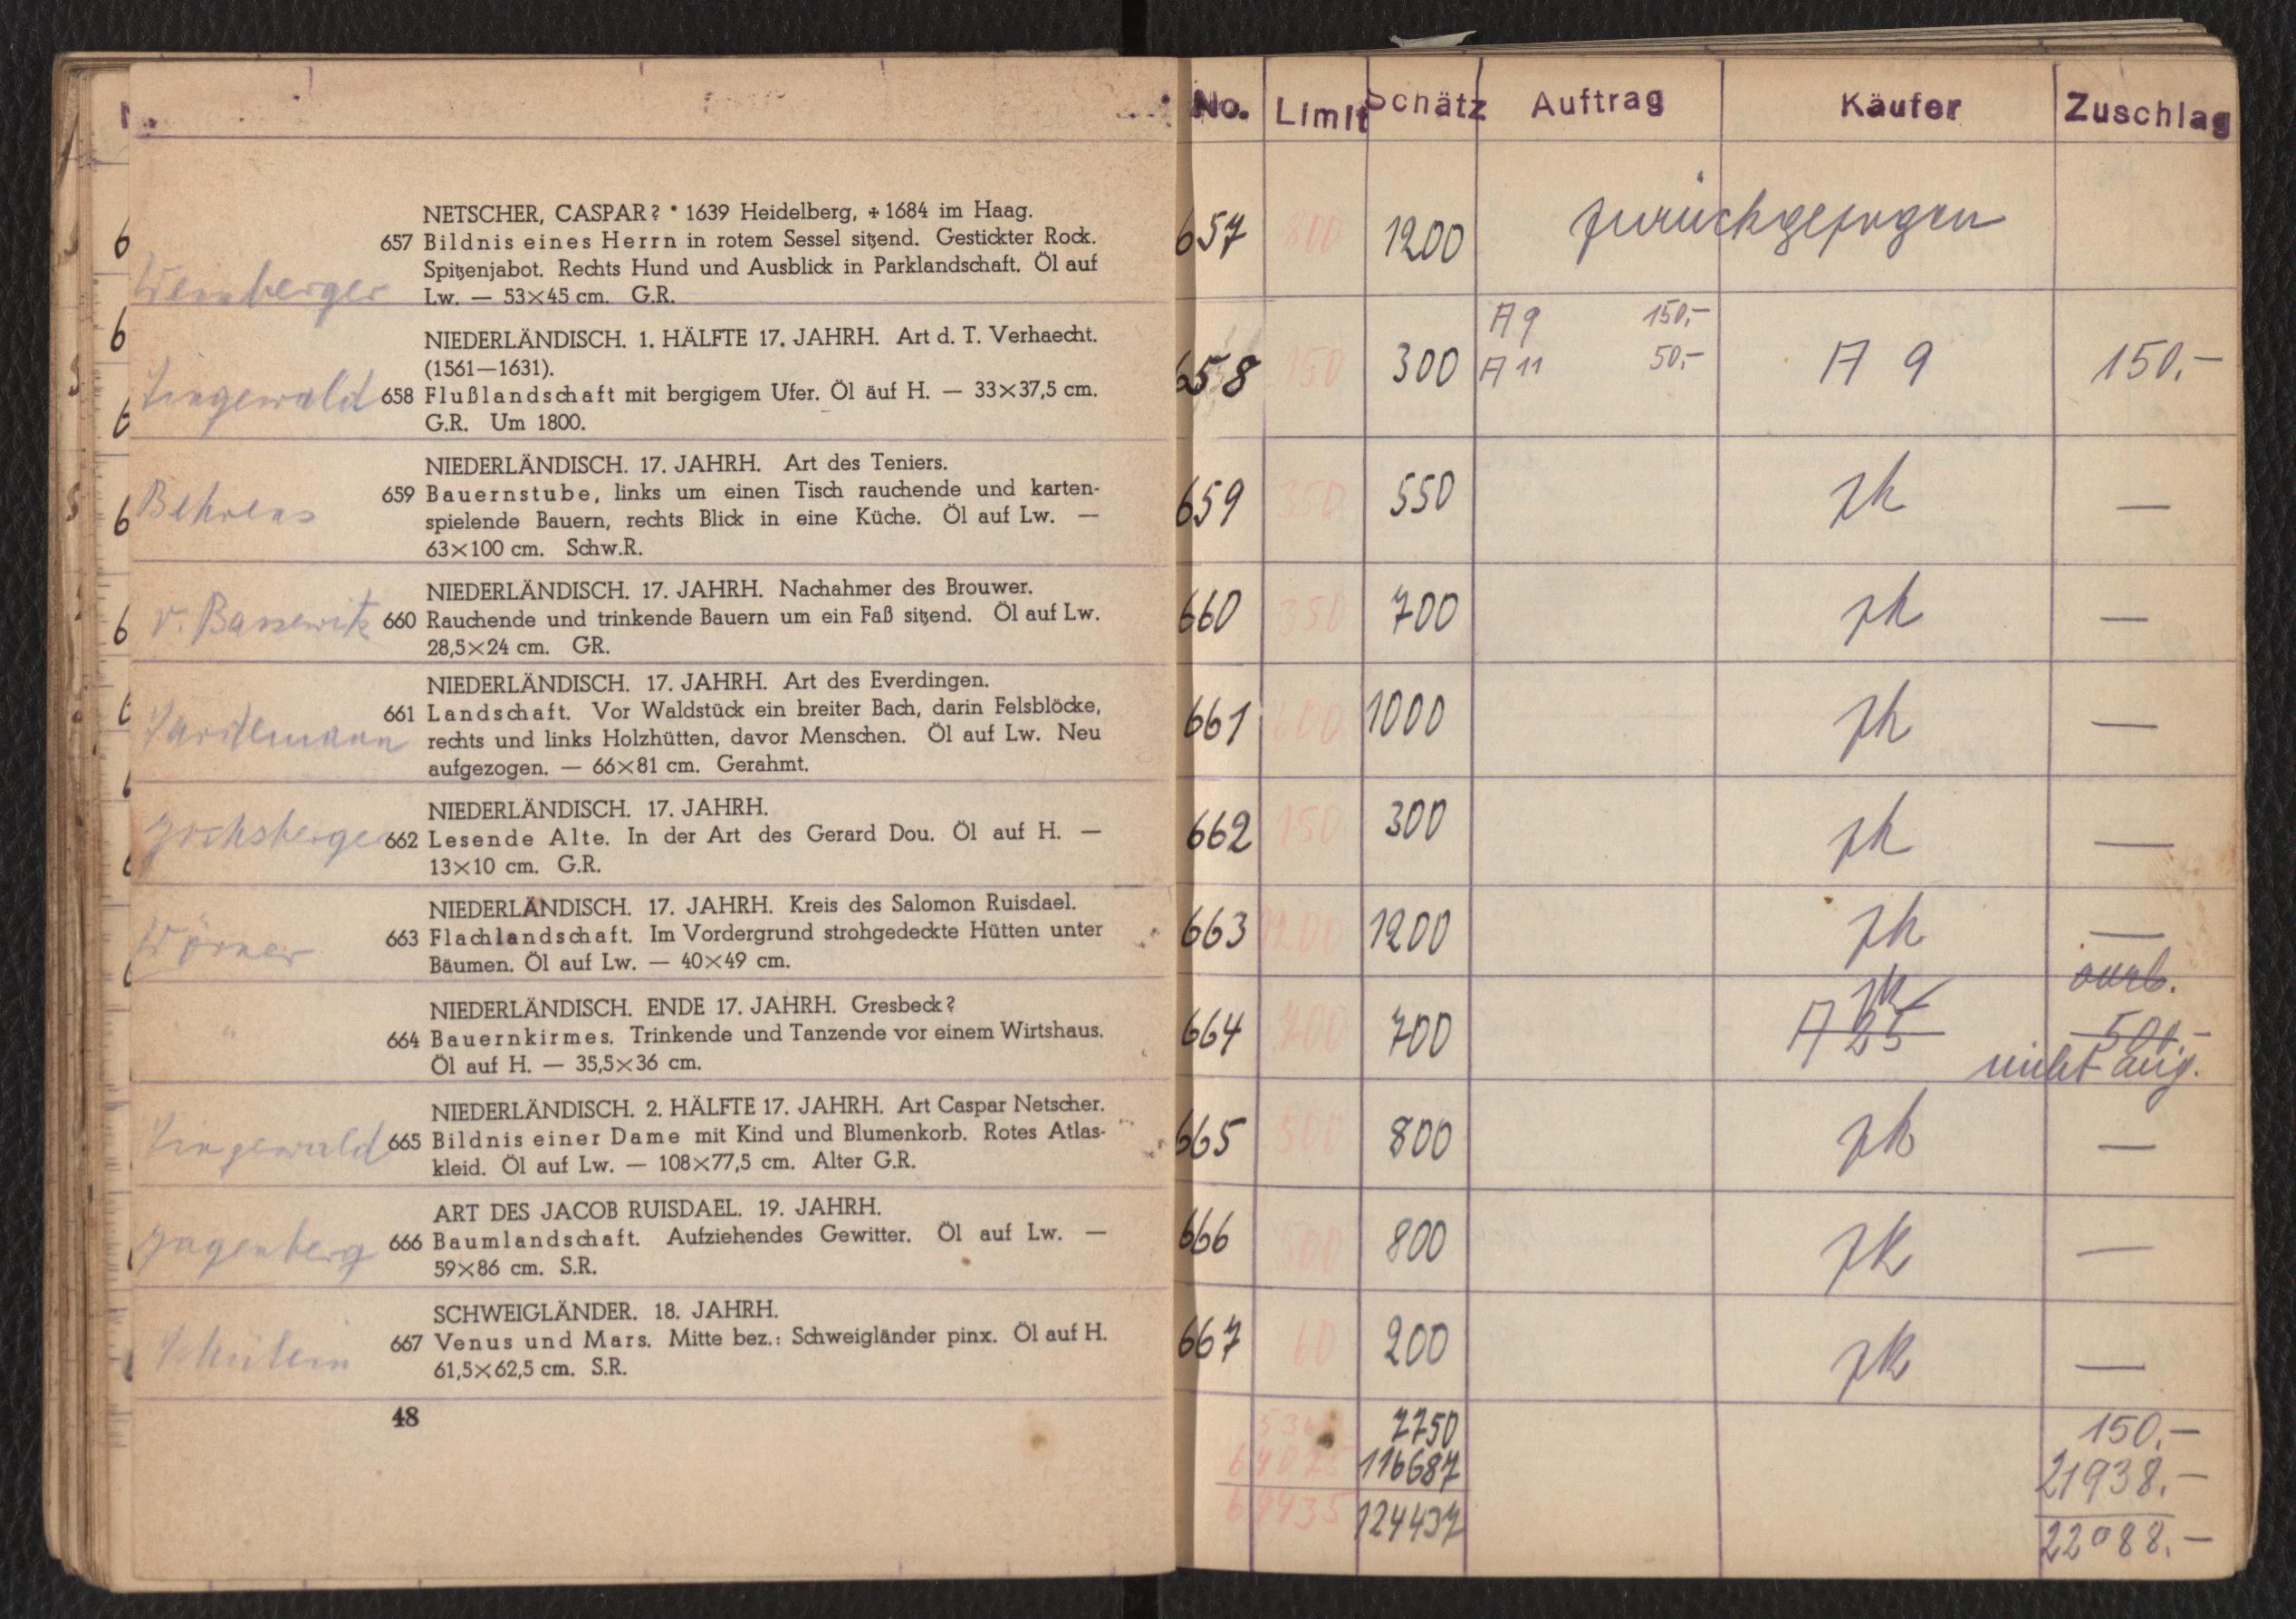 NETSCHER, CASPAR? * 1639 Heidelberg, + 1684 im Haag.
657 Bildnis eines Herrn in rotem Sessel sitzend. Gestickter Rock.
Spitzenjabot. Rechts Hund und Ausblick in Parklandschaft. Öl auf
Weinberger Lw. — 53×45 cm. G.R.
NIEDERLÄNDISCH. 1. HÄLFTE 17. JAHRH. Art d. T. Verhaecht.
(1561—1631).
Lingewald 658 Flußlandschaft mit bergigem Ufer. Öl äuf H. — 33×37,5 cm.
G.R. Um 1800.
NIEDERLÄNDISCH. 17. JAHRH. Art des Teniers.
Behrens 659 Bauernstube, links um einen Tisch rauchende und karten-
spielende Bauern, rechts Blick in eine Küche. Öl auf Lw. —
63×100 cm. Schw.R.
NIEDERLÄNDISCH. 17. JAHRH. Nachahmer des Brouwer.
v. Bassewitz 660 Rauchende und trinkende Bauern um ein Faß sitzend. Öl auf Lw.
28,5×24 cm. GR.
NIEDERLÄNDISCH. 17. JAHRH. Art des Everdingen.
661 Landschaft. Vor Waldstück ein breiter Bach, darin Felsblöcke,
rechts und links Holzhütten, davor Menschen. Öl auf Lw. Neu
aufgezogen. — 66×81 cm. Gerahmt.
NIEDERLÄNDISCH. 17. JAHRH.
662 Lesende Alte. In der Art des Gerard Dou. Öl auf H. —
13×10 cm. G.R.
NIEDERLÄNDISCH. 17. JAHRH. Kreis des Salomon Ruisdael.
Wörner 663 Flachlandschaft. Im Vordergrund strohgedeckte Hütten unter
Bäumen. Öl auf Lw. — 40×49 cm.
NIEDERLÄNDISCH. ENDE 17. JAHRH. Gresbeck?
" 664 Bauernkirmes. Trinkende und Tanzende vor einem Wirtshaus.
Öl auf H. — 35,5×36 cm.
NIEDERLÄNDISCH. 2. HÄLFTE 17. JAHRH. Art Caspar Netscher.
Lingewald 665 Bildnis einer Dame mit Kind und Blumenkorb. Rotes Atlas-
kleid. Öl auf Lw. — 108×77,5 cm. Alter G.R.
ART DES JACOB RUISDAEL. 19. JAHRH.
Jagenberg 666 Baumlandschaft. Aufziehendes Gewitter. Öl auf Lw. —
59×86 cm. S.R.
SCHWEIGLÄNDER. 18. JAHRH.
Schülein 667 Venus und Mars. Mitte bez.: Schweigländer pinx. Öl auf H.
61,5×62,5 cm. S.R.
48
No. Limit Schätz Auftrag Käufer Zuschlag
657 1200 zurückgezogen
A 9 150,-
658 150 300 A 11 50,- A 9 150.-
659 350 550 zk —
660 350 700 zk —
661 1000 zk —
662 150 300 zk —
663 1200 1200 zk —
zk
664 700 700 A 25 500.-
nicht
665 500 800 zk —
666 500 800 zk —
667 60 200 zk —
7750 150.—
116687 21938.—
124437 22088.—